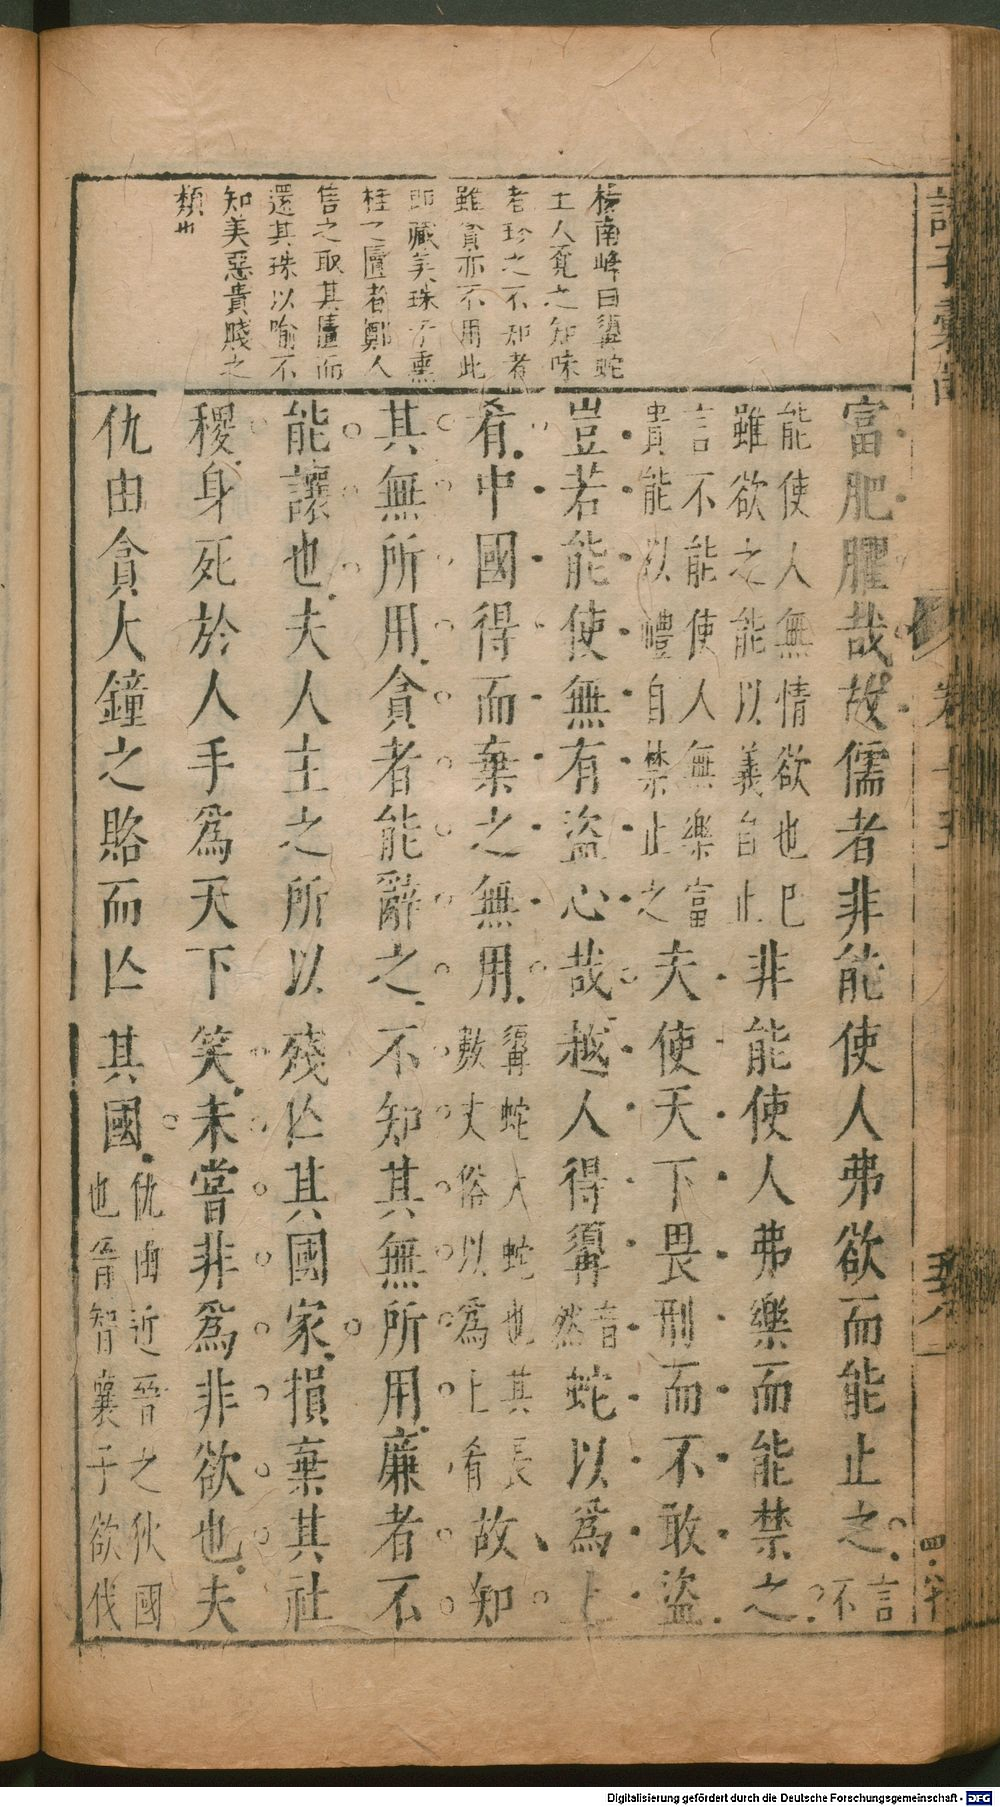 楊南峰曰䯝蛇
工人寛之知味
者珍之不知者
雖貪亦不用此
即藏美珠于熏
桂之匵者鄭人
售之取其匵而
還其珠以喻不
知美惡貴賤之
類也
富肥臞哉故儒者非能使人弗欲而能止之言不
能使人無情欲也巳
雖欲之能以義自止
非能使人弗樂而能禁之
言不能使人無樂富
貴能以禮自禁止之
夫使天下畏刑而不敢盜
豈若能使無有盜心哉越人得䯝音然蛇以爲上
肴中國得而棄之無用䯝蛇大蛇也其長數丈俗以爲上肴故知
其無所用貪者能辭之不知其無所用廉者不
能讓也夫人主之所以殘亾其國家損棄其社
稷身死於人手爲天下笑未嘗非爲非欲也夫
仇由貪大鐘之賂而亾其國仇由近晉之狄國也晉智襄子欲伐
Digitalisierung gefördert durch die Deutsche Forschungsgemeinschaft - DFG